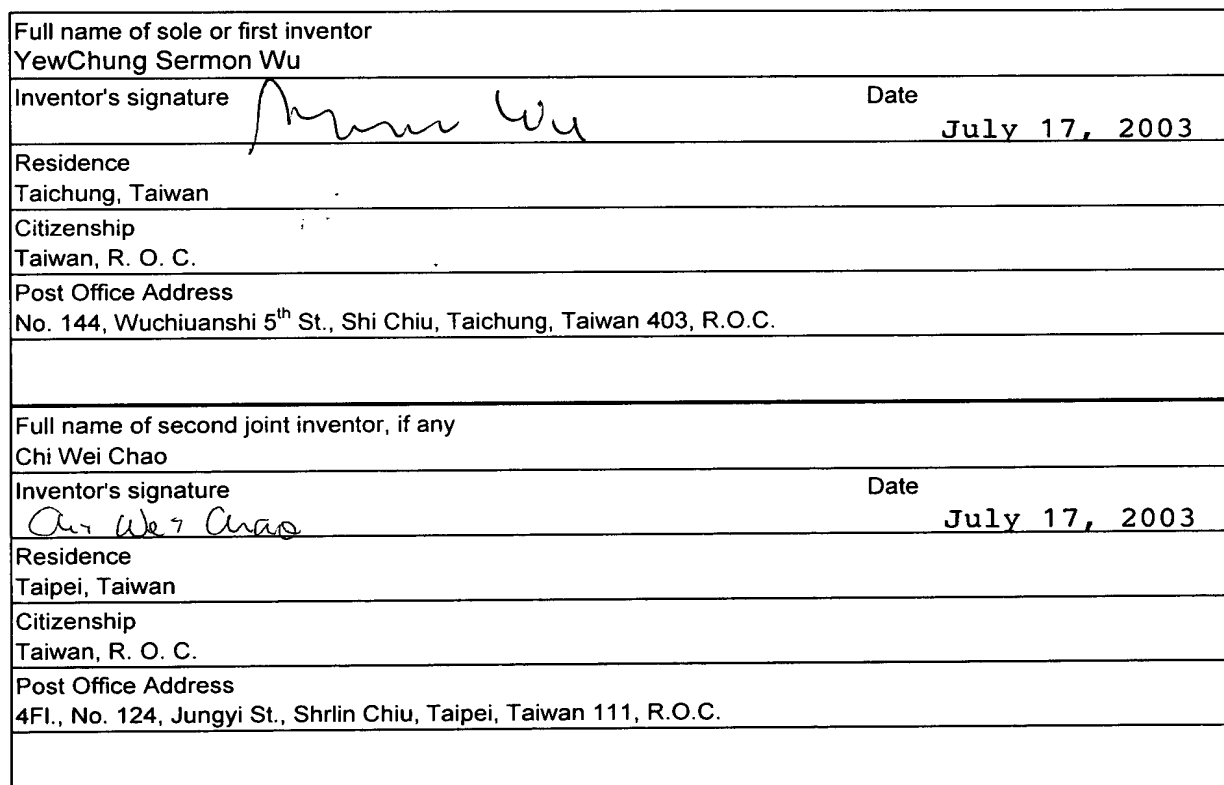 Full name of sole or first inventor
YewChung Sermon Wu
Inventor's signature Date
Wu
July 17, 2003
Residence
Taichung, Taiwan
Citizenship
Taiwan, R. O. C.
Post Office Address
No. 144, Wuchiuanshi 5th St., Shi Chiu, Taichung, Taiwan 403, R.O.C.
Full name of second joint inventor, if any
Chi Wei Chao
Inventor's signature Date
Chi Wei Chao July 17, 2003
Residence
Taipei, Taiwan
Citizenship
Taiwan, R. O. C.
Post Office Address
4Fl., No. 124, Jungyi St., Shrlin Chiu, Taipei, Taiwan 111, R.O.C.